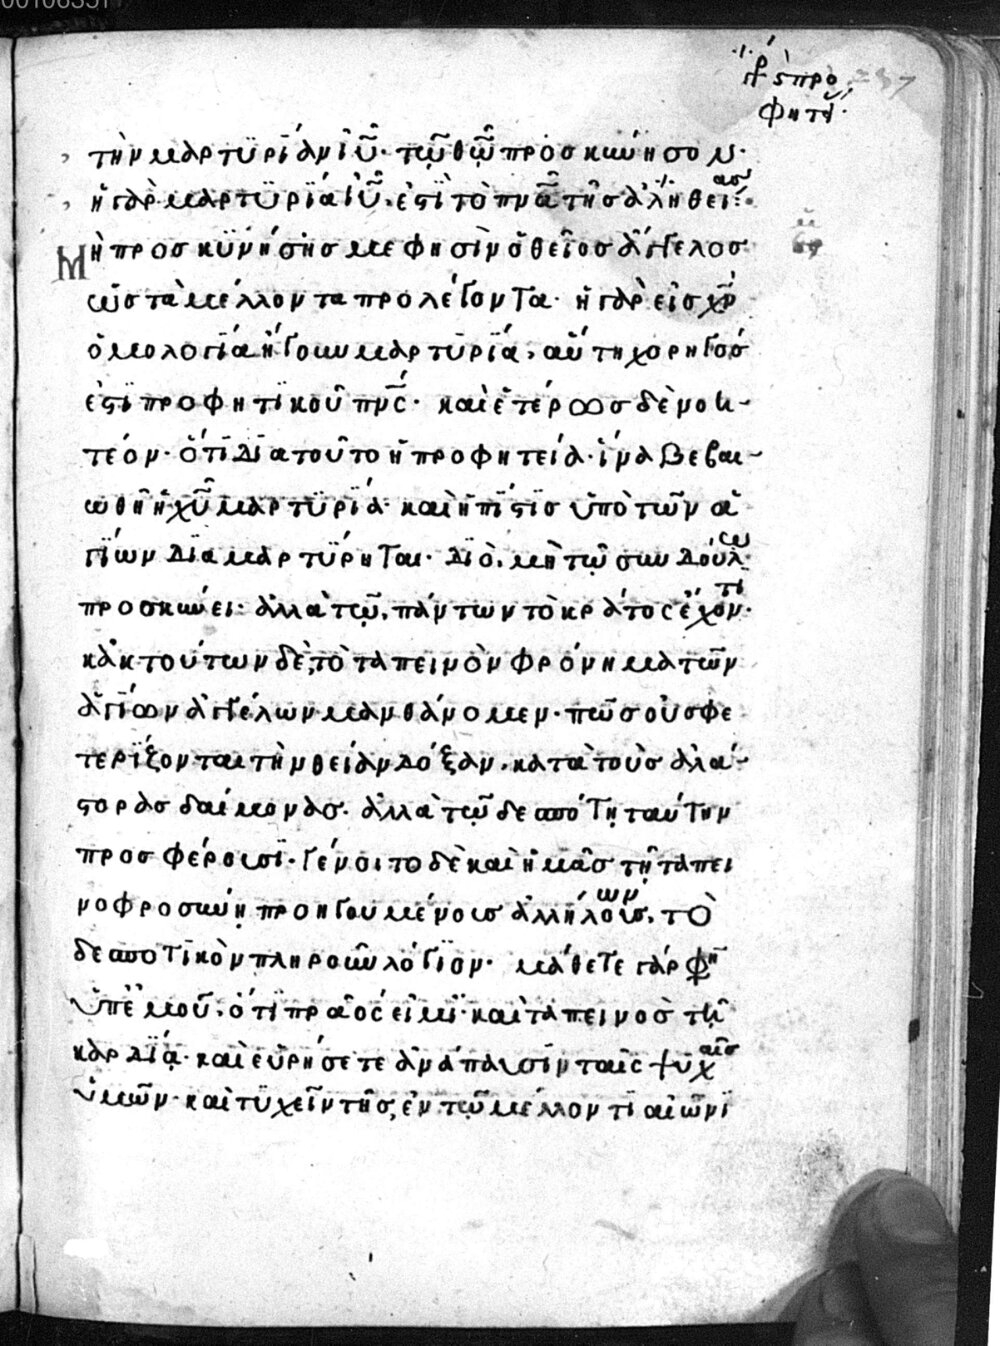 τὴν μαρτυρίαν ἰῦ. τῶ θῶ προσκύνησον.
ἡ γὰρ μαρτυρία ἰῦ, ἐστὶ τὸ πνᾶ τῆς ἀληθείας:
Μὴ προσκυνήσης με φησὶν ὁ θεῖος ἄγγελος
ὡς τὰ μέλλοντα προλέγοντα. ἡ γὰρ εἰς χν
ὁμολογία ἤγουν μαρτυρία, αὕτη χορηγὸς
ἐστὶ προφητικοῦ πνς. καὶ ἑτέρως δὲ νοη
τέον. ὅτι διατοῦτο ἡ προφητεία. ἵνα βεβαι
ωθῆ ἡ χῦ μαρτυρία. καὶ ἡ πίστις ὑπὸ τῶν ἁ
γίων διαμαρτύρηται. διὸ, μὴ τῶ συνδούλω
προσκύνει. ἀλλὰ τῶ, πάντων τὸ κράτος ἔχοντι.
κἀκ τούτων δὲ, τὸ ταπεινὸν φρόνημα τῶν
ἁγίων ἀγγέλων μανθάνομεν. πῶς οὐ σφε
τερίζονται τὴν θείαν δόξαν. κατὰ τοὺς ἀλά
στορας δαίμονας. ἀλλὰ τῶ δεσπότη ταύτην
προσφέρουσι. γένοιτο δὲ καὶ ἡμᾶς τῆ ταπει
νοφροσύνη προηγουμένους ἀλλήλων, τὸ
δεσποτικὸν πληροῦν λόγιον. μάθετε γάρ φη
ἀπ' ἐμοῦ, ὅτι πρᾶος εἰμὶ. καὶ ταπεινὸς τῆ
καρδία. καὶ εὑρήσετε ἀνάπαυσιν ταῖς ψυχαῖς
ὑμῶν. καὶ τυχεῖν τῆς, ἐν τῶ μέλλοντι αἰῶνι